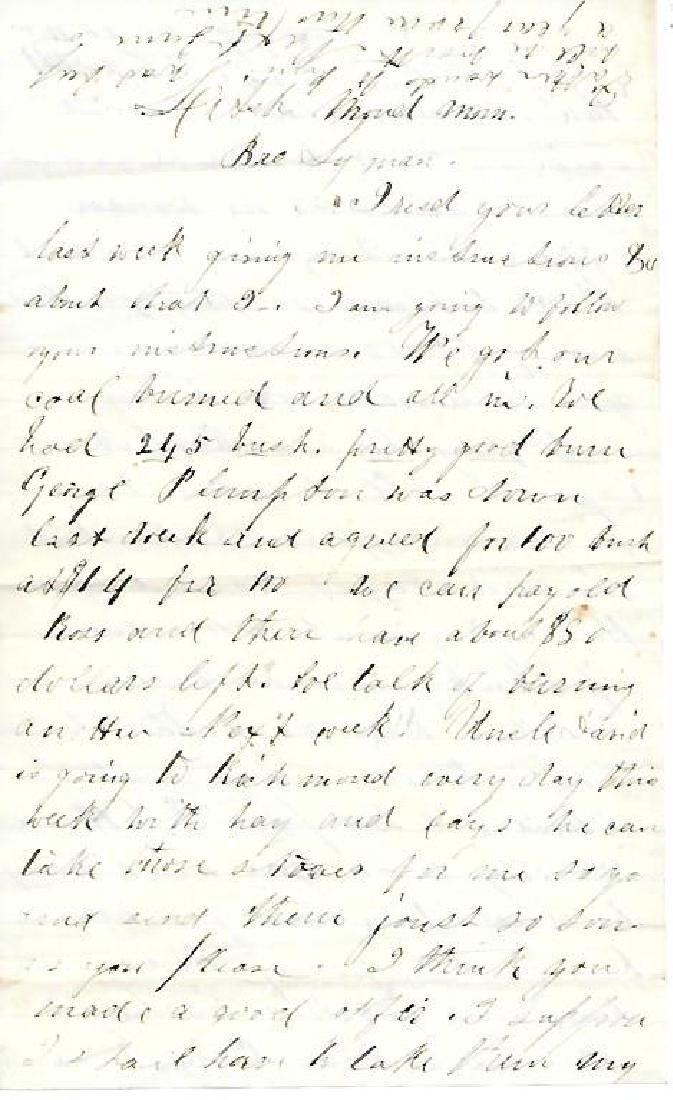 Bro Lyman.
I recd your letter
last week giving me instructions &c
about that I am going to follow
your instructions. We got our
coal burned and all in. We
had 245 bush. pretty good burn
George Plumpton was down
last week and agreed for 100 bush
at $14 per we can pay old
Ross and then have about $50
dollars left. We talk of burning
another Next week. Uncle David
is going to Richmond every day this
week with hay and says he can
take those stoves for me so go
and send them joust so soon
as you please. I think you
made a good offer. I suppose
I shall have to take them my